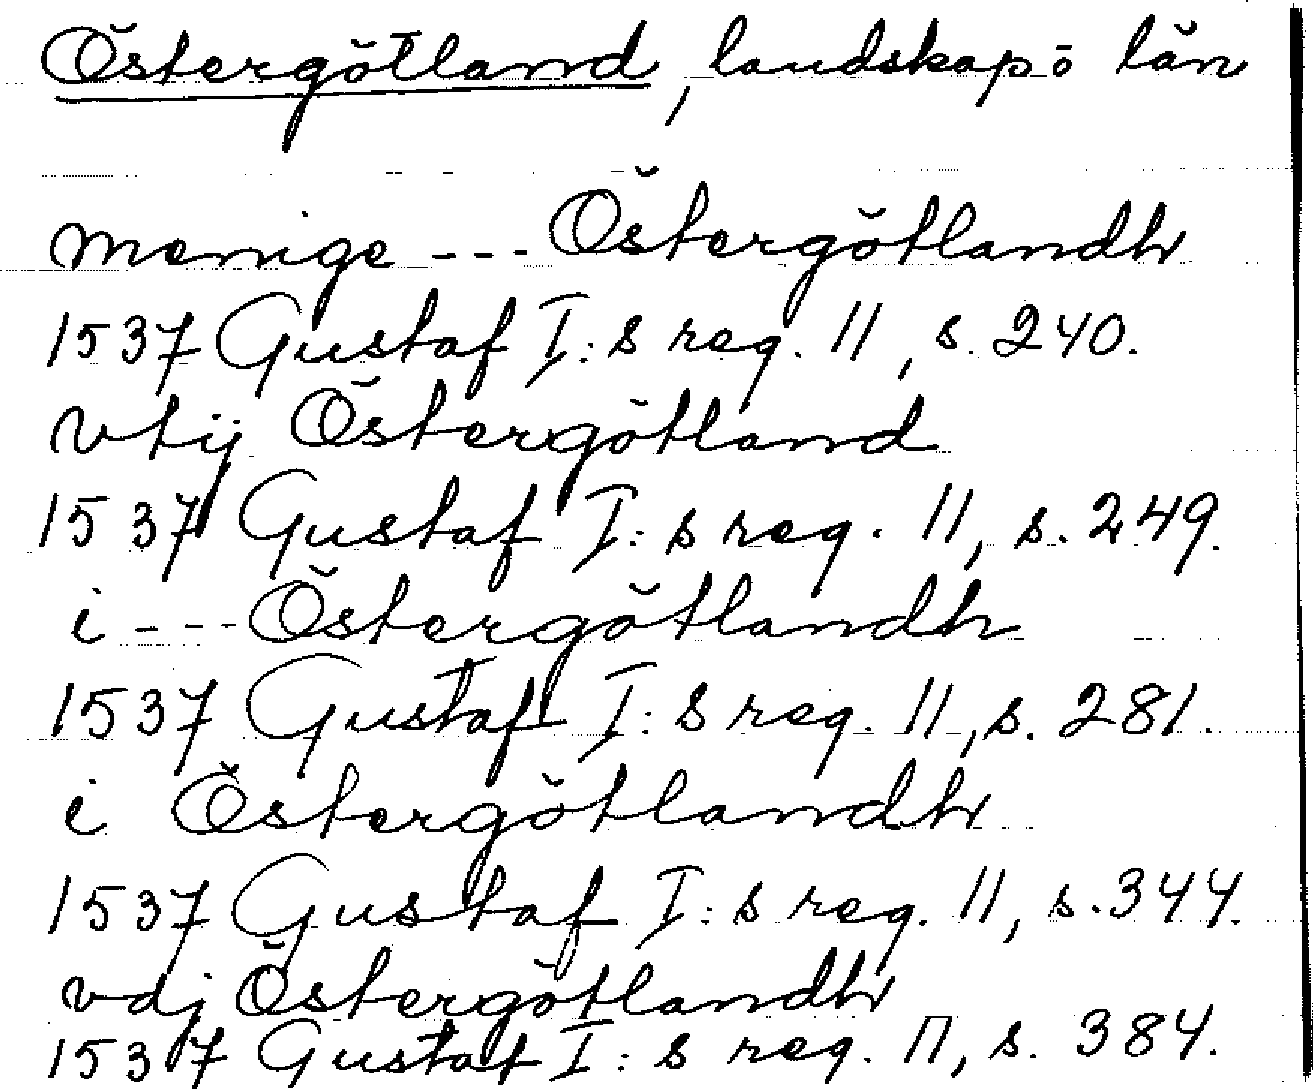 Östergötland, landskap ö län
menige --- Östergötlandh
1537 Gustaf I:s reg. 11, s. 240.
vtij Östergötland
1537 Gustaf I:s reg. 11, s. 249.
i --- Östergötlandh
1537 Gustaf I:s reg. 11, s. 281.
i Östergötlandh
1537 Gustaf I:s reg. 11, s. 344.
vdj Östergötlandh
1537 Gustaf I:s reg. 11, s. 384.